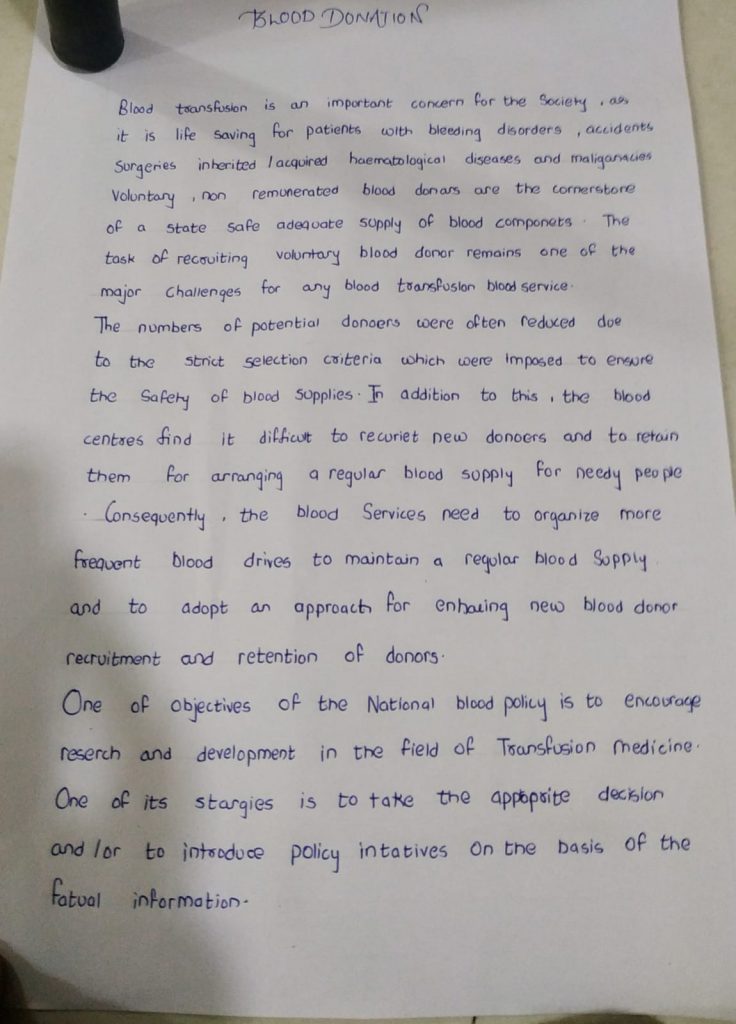 BLOOD DONATION
Blood transfusion is an important concern for the Society , as
it is life saving for patients with bleeding disorders , accidents
Surgeries inherited / acquired haematological diseases and maliganacies
Voluntary , non remunerated blood donars are the cornerstore
of a state safe adequate supply of blood componets . The
task of recouiting voluntary blood donor remains one of the
major challenges for any blood transfusion blood service.
The numbers of potential donoers were often reduced due
to the strict selection criteria which were imposed to ensure
the Safety of blood supplies. In addition to this , the blood
centres find it difficut to recuriet new donoers and to retain
them for arranging a regular blood supply for needy people
. Consequently , the blood Services need to organize more
frequent blood drives to maintain a regular blood Supply
and to adopt an approach for enhacing new blood donor
recruitment and retention of donors.
One of objectives of the National blood policy is to encourage
reserch and development in the field of Transfusion medicine.
One of its stargies is to take the appoprite decision
and /or to introduce policy intatives on the basis of the
fatual information.